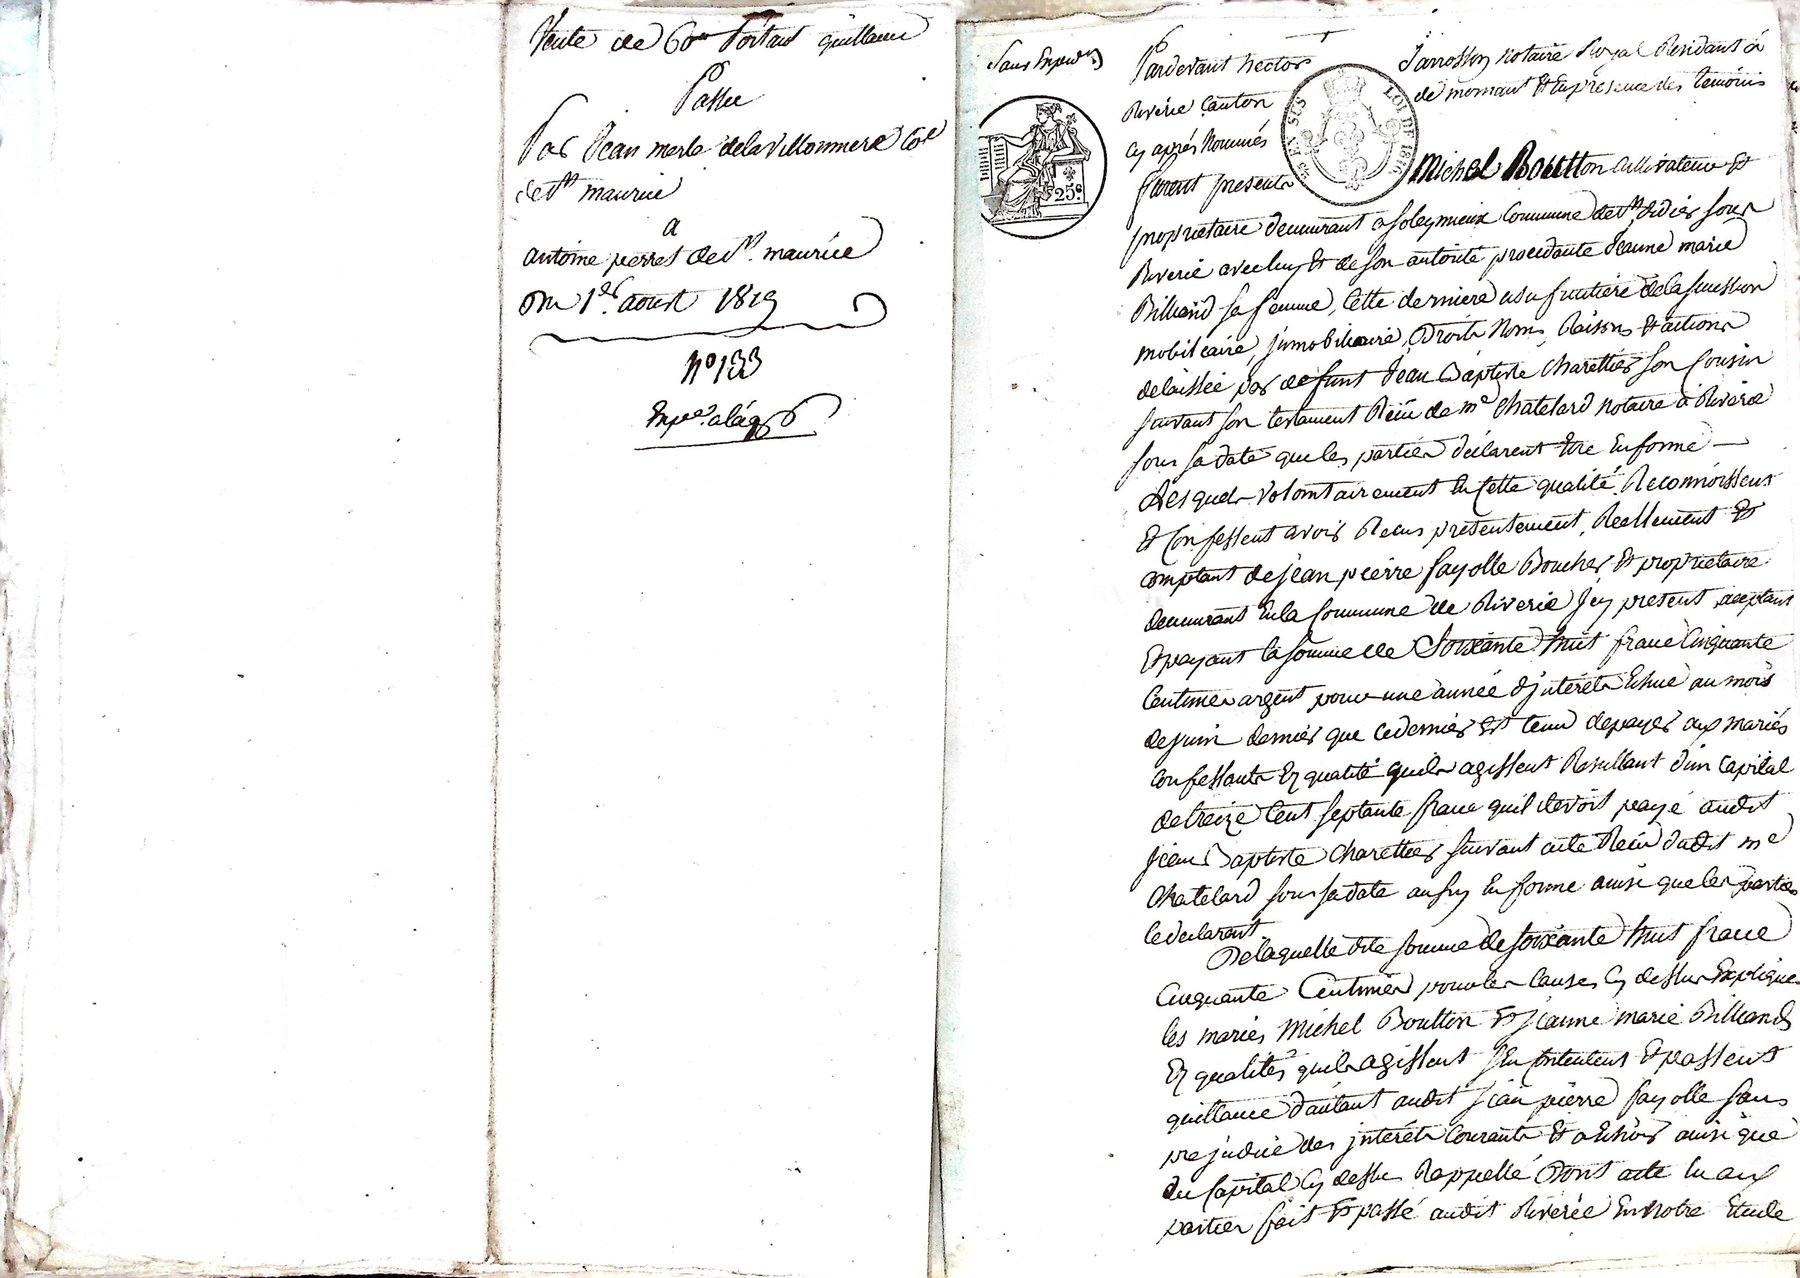 Vente de 60 ll Portant quittance
Passée
Par Jean merle delavillonniere
de St maurice
a
antoine pierres de St. maurice
Du 1er. aoust 1819
N° 133
Sans Expedon
Pardevant hector Jarrosson notaire Royal Residant à
Riverie Canton de mornant Et En présence des témoins
Cy après Nommés
furent presents Michel Boutton cultivateur Et
proprietaire demeurant a Soleymieux Commune de St. didier sous
Riverie avecluy Et de son autorité procedante Jeanne marie
Billiand sa femme, Cette derniere usufruitiere dela succession
mobiliaire, jmobiliaire, Droits Noms, Raisons Et actions
delaissée par defunt Jean Baptiste Charettier son Cousin
suivant son testament Reçu de me Chatelard notaire à Riverie
sous sa date que les parties déclarent Etre En forme —
Lesquels volontairement En Cette qualité Reconnoissent
Et Confessent avoir Recus présentement, Réellement Et
comptant de jean pierre fayolle Boucher Et proprietaire
demeurant En la Commune de Riverie Jcy present, acceptant
Et payant la somme de Soixante huit franc Cinquante
Centimes argent pour une année d'jntérêts Echue au mois
de juin dernier que cedernier Est tenu depayer aux mariés
Confessants Es qualité quils agissent Resultant d'un Capital
detreize Cent septante franc quil devoit payé audit
Jean Baptiste Charettier suivant acte Reçu dudit me
Chatelard sous sa date aussy En forme ainsi que les parties
le declarent
De laquelle dite somme de soixante huit franc
Cinquante Centimes pour les causes Cy dessus Expliques
les mariés Michel Boutton Et Jeanne marie Billiand
Es qualités quils agissent s'En Contentent Et passent
quittance d'autant audit Jean pierre fayolle sans
prejudice des jnterêts Courants Et a Echoir ainsi que
du Capital Cy dessus Rappellé Dont acte lu aux
parties fait Et passé audit Riverie En Notre Etude
25 c
25 EN SUS
LOI DE 1816